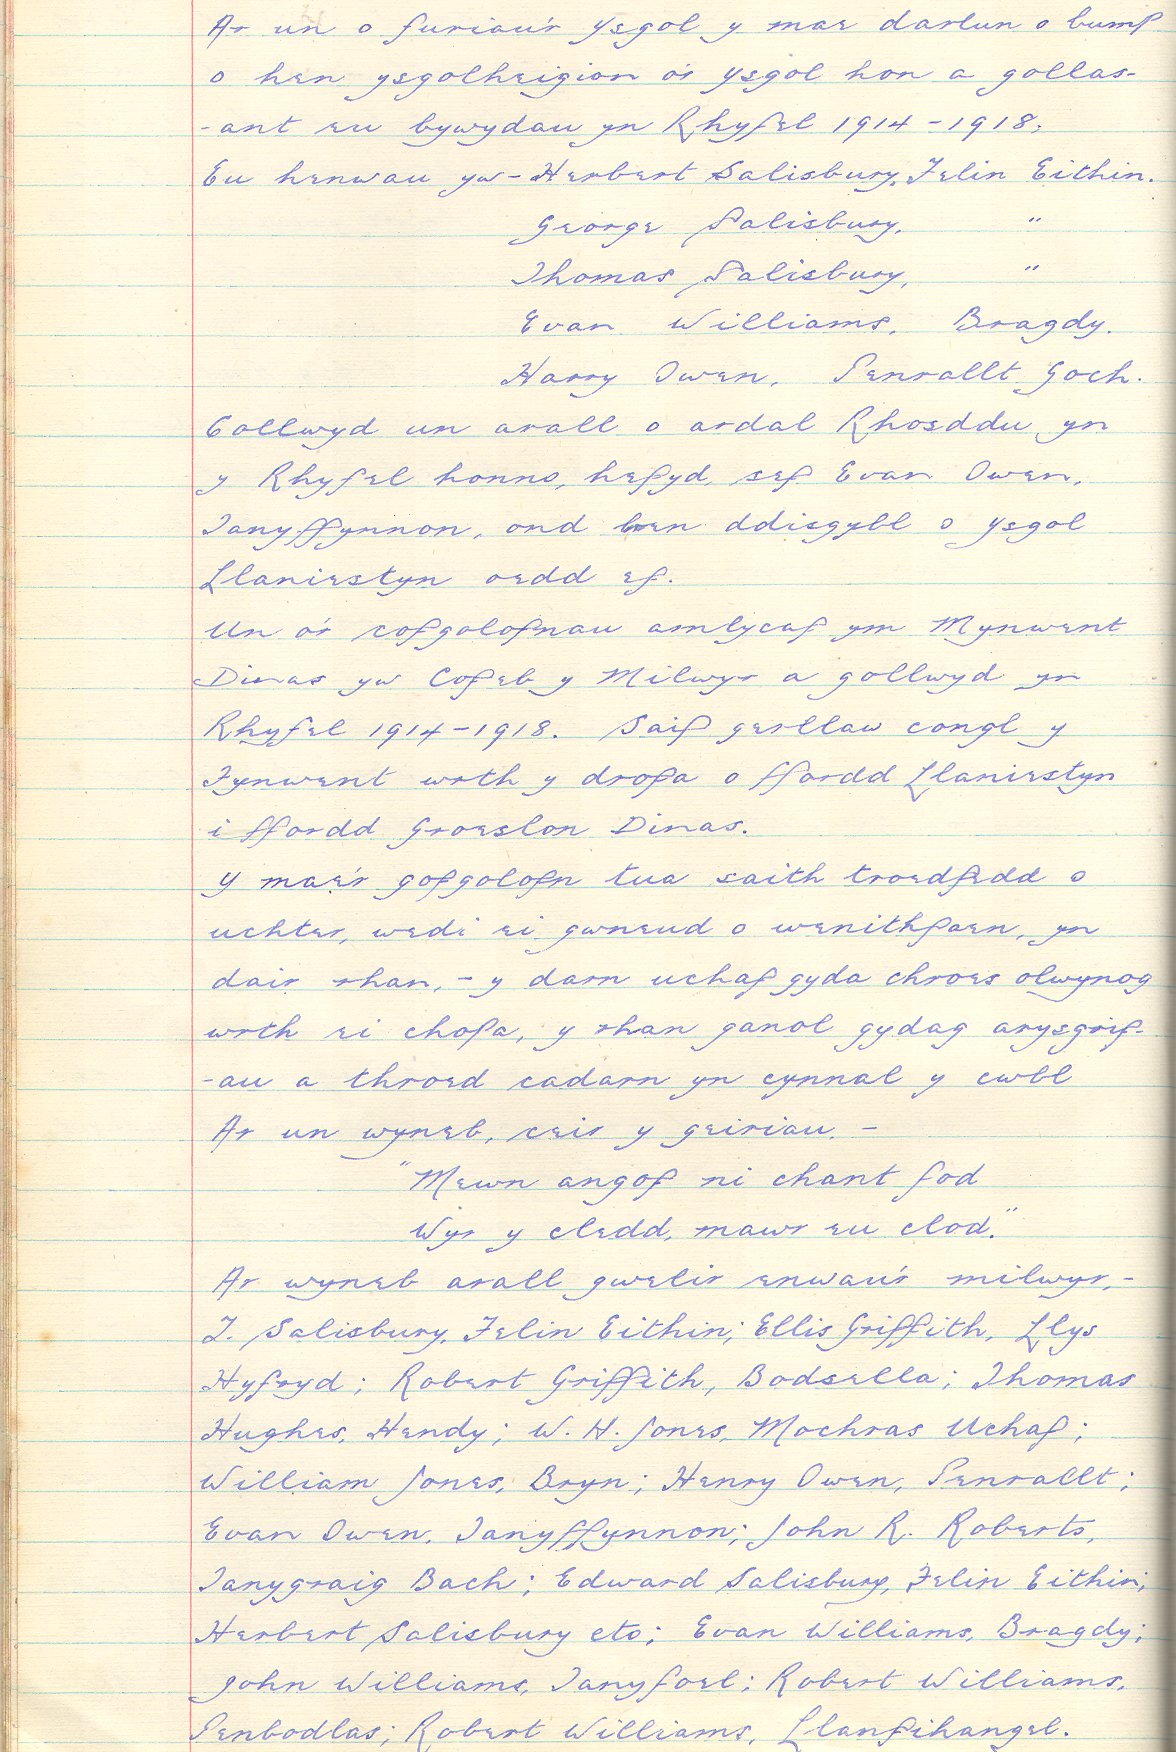 Ar un o furiau'r Ysgol y mae darlun o bump
o hen ysgolheigion o'r Ysgol hon a gollas-
-ant eu bywydau yn Rhyfel 1914-1918.
Eu henwau yw- Herbert Salisbury, Felin Eithin.
George Salisbury, "
Thomas Salisbury, "
Evan Williams, Bragdy.
Harry Owen, Penrallt Goch.
Collwyd un arall o ardal Rhosddu yn
y Rhyfel honno, hefyd, sef Evan Owen,
Tanyffynnon, ond hen ddisgybl o Ysgol
Llaniestyn oedd ef.
Un o'r cofgolofnau amlycaf ym Mynwent
Dinas yw Cofeb y Milwyr a gollwyd yn
Rhyfel 1914-1918. Saif gerllaw congl y
Fynwent wrth y drofa o ffordd Llaniestyn
i ffordd Groeslon Dinas.
Y mae'r gofgolofn tua saith troedfedd o
uchter, wedi ei gwneud o wenithfaen, yn
dair rhan, - y darn uchaf gyda chroes olwynog
wrth ei chofa, y rhan ganol gydag arysgrif-
-au a throed cadarn yn cynnal y cwbl
Ar un wyneb, ceir y geiriau. -
"Mewn angof ni chant fod
Wyr y cledd, mawr eu clod."
Ar wyneb arall gwelir enwau'r milwyr, -
T. Salisbury, Felin Eithin; Ellis Griffith, Llys
Hyfryd; Robert Griffith, Bodsella; Thomas
Hughes, Hendy; W. H. Jones, Mochras Uchaf;
William Jones, Bryn; Henry Owen, Penrallt;
Evan Owen, Tanyffynnon; John R. Roberts,
Tanygraig Bach; Edward Salisbury, Felin Eithin;
Herbert Salisbury eto; Evan Williams, Bragdy;
John Williams, Tanyfoel; Robert Williams,
Penbodlas; Robert Williams, Llanfihangel.